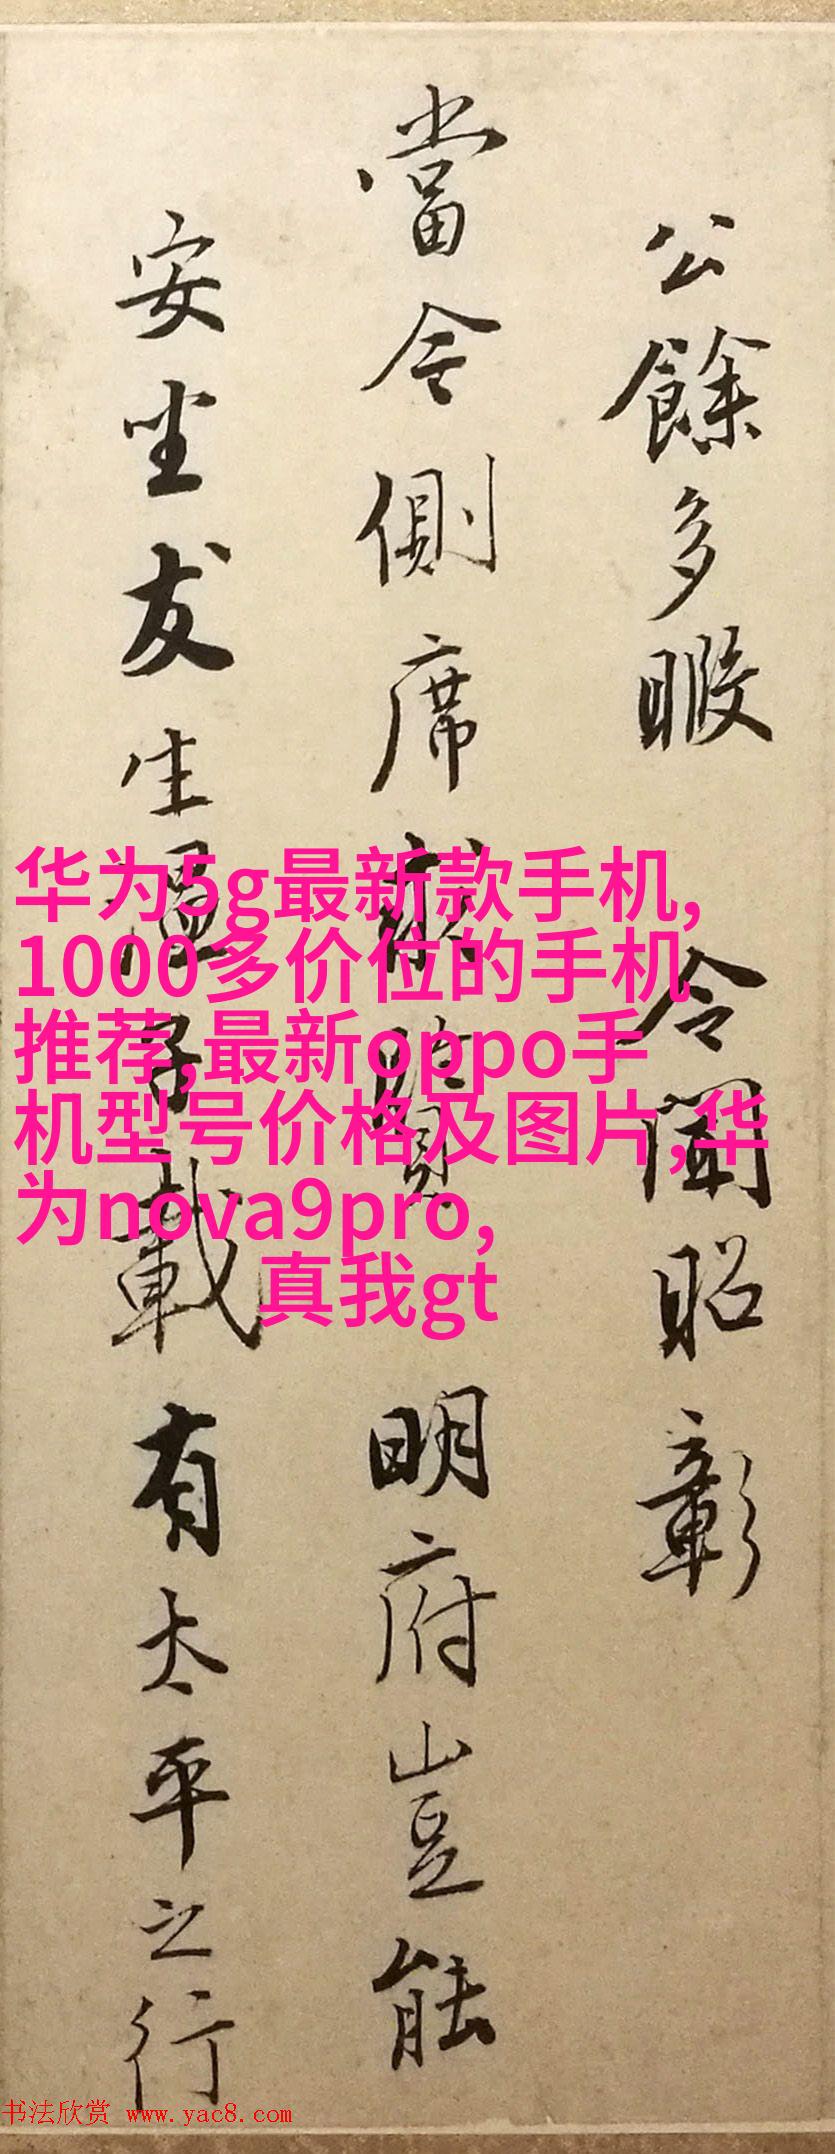 公餘多暇 令聞昭彰
當今側席求賢 明府豈能
安坐友生溫子載有太平之行
华为5g最新款手机,
1000多价位的手机
推荐,最新oppo手
机型号价格及图片,华
为nova9pro,
真我gt
书法欣赏 www.yac8.com